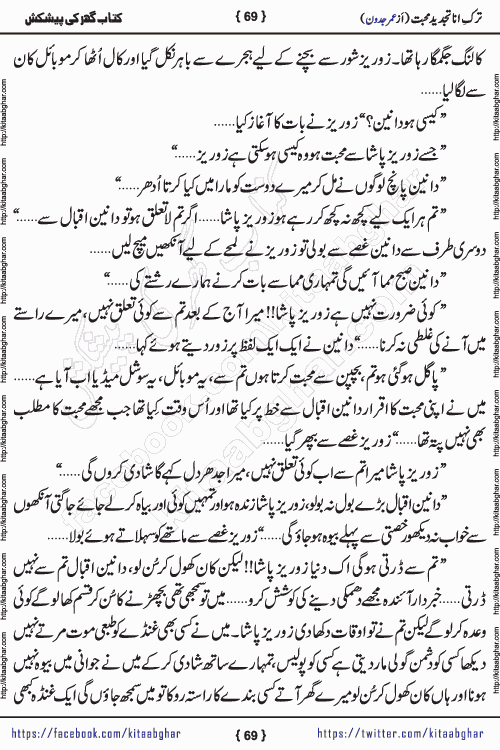 ترکِ انا تجدیدِ محبت (از عمر جدون)
{ 69 }
کتاب گھر کی پیشکش
کالنگ جگمگا رہا تھا۔ زوریز شور سے بچنے کے لیے ہجرے سے باہر نکل گیا اور کال اُٹھا کر موبائل کان
سے لگا لیا......
”کیسی ہو دانین؟“ زوریز نے بات کا آغاز کیا......
”جسے زوریز پاشا سے محبت ہو وہ کیسی ہو سکتی ہے زوریز......“
”دانین پانچ لوگوں نے مل کر میرے دوست کو مارا میں کیا کرتا اُدھر......“
”تم ہر ایک لیے کچھ نہ کچھ کر رہے ہو زوریز پاشا...... اگر تم لا تعلق ہو تو دانین اقبال سے......“
دوسری طرف سے دانین غصے سے بولی تو زوریز نے لمحے کے لیے آنکھیں میچ لیں......
”دانین صبح مما آئیں گی تمہاری مما سے بات کرنے ہمارے رشتے کی......“
”کوئی ضرورت نہیں ہے زوریز پاشا!! میرا آج کے بعد تم سے کوئی تعلق نہیں، میرے راستے
میں آنے کی غلطی نہ کرنا......“ دانین نے ایک ایک لفظ پر زور دیتے ہوئے کہا......
”پاگل ہو گئی ہو تم، بچپن سے محبت کرتا ہوں تم سے، یہ موبائل، یہ سوشل میڈیا اب آیا ہے......
میں نے اپنی محبت کا اقرار دانین اقبال سے خط پر کیا تھا اور اُس وقت کیا تھا جب مجھے محبت کا مطلب
بھی نہیں پتہ تھا......“ زوریز غصے سے بپھر گیا......
”زوریز پاشا میرا تم سے اب کوئی تعلق نہیں، میرا جدھر دل کہے گا شادی کروں گی......“
”دانین اقبال بڑے بول نہ بولو، زوریز پاشا زندہ ہو اور تمہیں کوئی اور بیاہ کر لے جائے جاگتی آنکھوں
سے خواب نہ دیکھو رخصتی سے پہلے بیوہ ہو جاؤ گی......“ زوریز غصے سے ماتھے کو سہلاتے ہوئے بولا......
”تم سے ڈرتی ہوگی اک دنیا زوریز پاشا!! لیکن کان کھول کر سُن لو، دانین اقبال تم سے نہیں
ڈرتی...... خبردار آئندہ مجھے دھمکی دینے کی کوشش کرو...... میں تو سمجھی تھی بچھڑنے کا سُن کر قسم کھا لو گے کوئی
وعدہ کر لو گے لیکن تم نے تو اوقات دکھا دی زوریز پاشا۔ میں نے کسی بھی غنڈے کو طبعی موت مرتے نہیں
دیکھا کسی کو دشمن گولی مار دیتی ہے کسی کو پولیس، تمہارے ساتھ شادی کر کے میں نے جوانی میں بیوہ نہیں
ہونا اور ہاں کان کھول کر سُن لو میرے گھر آتے کسی بندے کا راستہ روکا تو میں سمجھ جاؤں گی ایک غنڈہ کبھی
https://facebook.com/kitaabghar
{ 69 }
https://twitter.com/kitaabghar